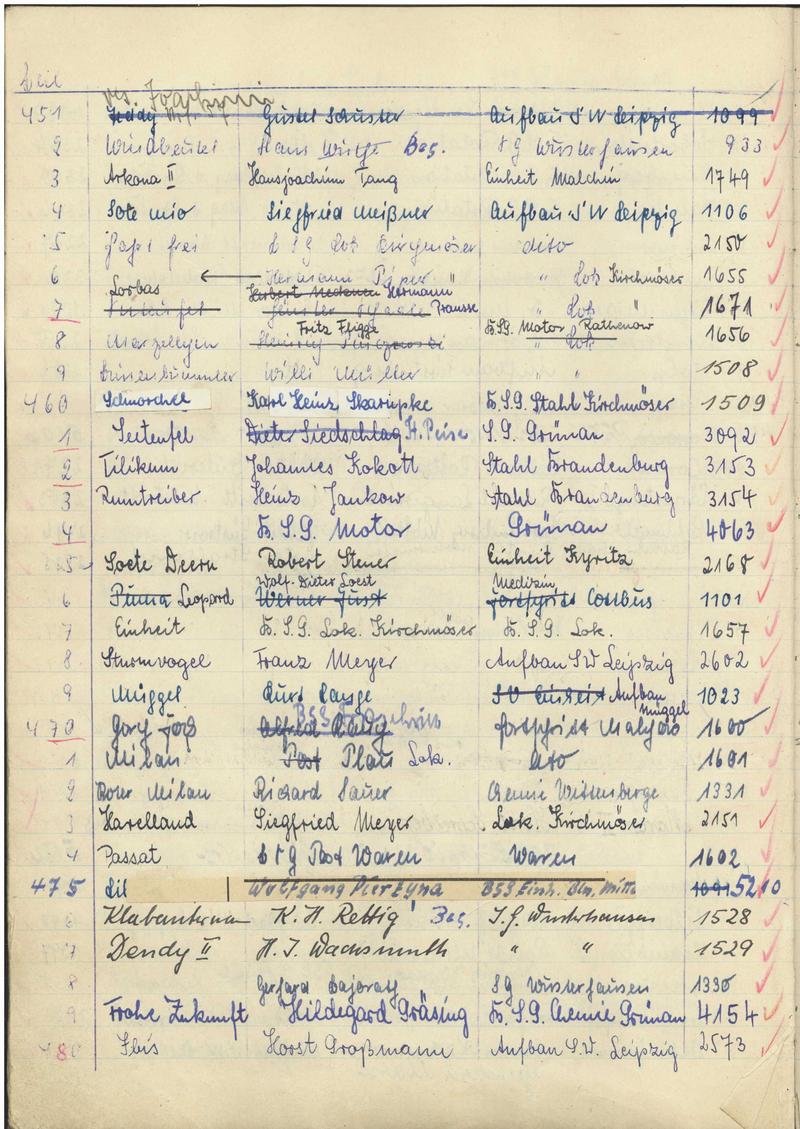 451 Teddy Gustel Schuster Aufbau SW Leipzig 1099
2 Windbeutel Hans Wirthe Bes. SG Wusterhausen 933
3 Arkona II Hansjoachim Tang Einheit Malchin 1749
4 Sole mio Siegfried Meißner Aufbau SW Leipzig 1106
5 frei BSG Lok Kirchmöser dito 2150
6 Hermann Päper " Lok Kirchmöser 1655
7 Lorbas Hermann" Pransse " Lok " 1671
8 Fritz Flügge B.S.G. Motor Rathenow 1656
" Lok
9 Willi Müller " " 1508
460 Schnorchel Karl Heinz Skarupke B.S.G. Stahl Kirchmöser 1509
1 Seeteufel Dieter Siedschlag H. Peise S.G. Grünau 3092
2 Tilikum Johannes Kokott Stahl Brandenburg 3153
3 Rumtreiber Heinz Jankow Stahl Brandenburg 3154
4 B.S.G. Motor Grünau 4063
5 Soete Deern Robert Stener Einheit Kyritz 2168
Wolf-Dieter Loest Medizin
6 Leopard Werner Just Fortschritt Cottbus 1101
7 Einheit B.S.G. Lok. Kirchmöser B.S.G. Lok. 1657
8 Sturmvogel Franz Meyer Aufbau S.W. Leipzig 2602
9 Müggel Kurt Lange SV Einheit Aufbau Müggel 1023
470 Gorch Fock BSG Fortschritt Fortschritt Malchow 1600
1 Milan Post Plau Lok. dito 1601
2 Roter Milan Richard Sauer Chemie Wittenberge 1331
3 Havelland Siegfried Meyer Lok. Kirchmöser 2151
4 Passat BSG Post Waren Waren 1602
475 Lil Wolfgang Pierzyna BSG Einh. Bln. Mitte 1091 5210
6 K. H. Rettig Bes. S.G. Wusterhausen 1528
7 Dendy II H. J. Wachsmuth " " 1529
8 Gerhard Bajorath SG Wusterhausen 1330
9 Frohe Zukunft Hildegard Gräsing B.S.G. Chemie Grünau 4154
480 Ibis Horst Großmann Aufbau S.W. Leipzig 2573